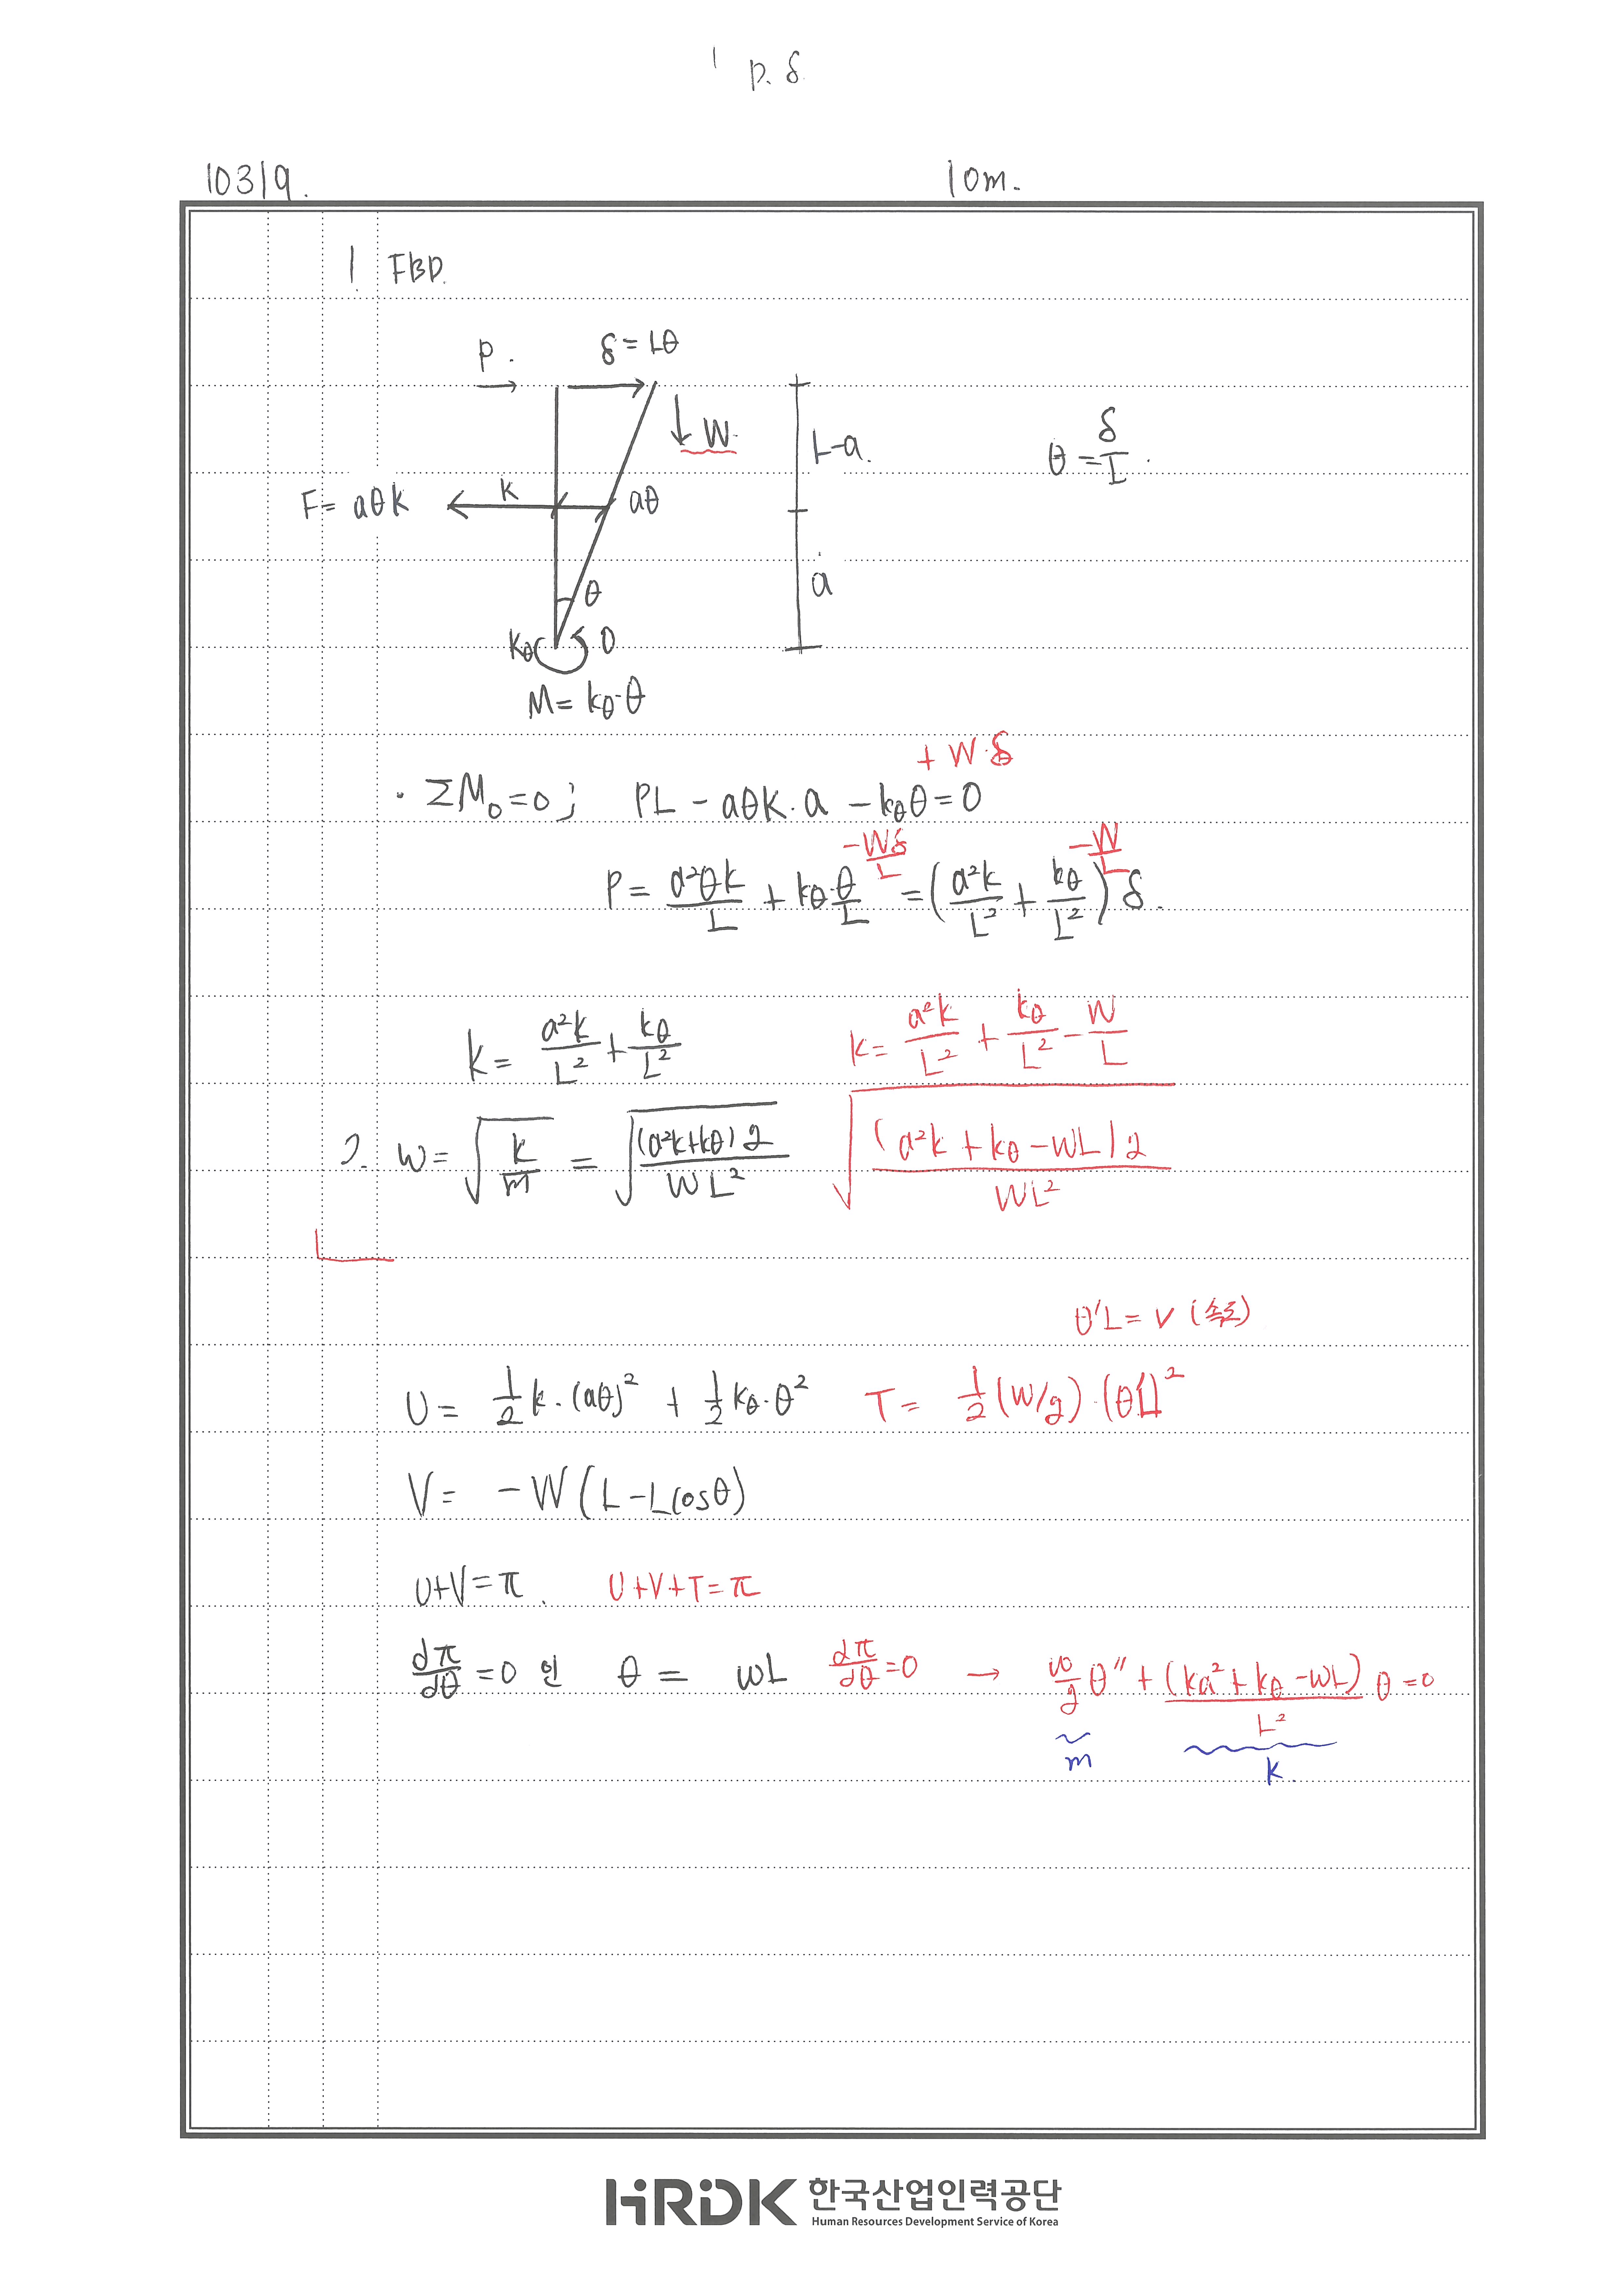 1 p. δ
10319. 10m.
1 FBD.
P. δ = Lθ
W.
L-a.
θ = δ/L.
F = aθk k aθ
θ
a
kθ O
M = kθ·θ
+ W·δ
· ΣM₀ = 0 ; PL - aθk·a - kθθ = 0
P = a²θk/L + kθ·θ/L - Wδ/L = (a²k/L² + kθ/L² - W/L) δ.
k = a²k/L² + kθ/L² k = a²k/L² + kθ/L² - W/L
2. w = √(k/m) = √((a²k+kθ)g/WL²) √((a²k + kθ - WL)g/WL²)
θ'L = v (속도)
U = 1/2 k·(aθ)² + 1/2 kθ·θ² T = 1/2 (W/g)·(θ'L)²
V = -W(L-Lcosθ)
U+V = π. U+V+T = π
dπ/dθ = 0 인 θ = wL dπ/dθ = 0 → w/g θ'' + (ka² + kθ - WL)/L² θ = 0
m k.
HRDK 한국산업인력공단
Human Resources Development Service of Korea